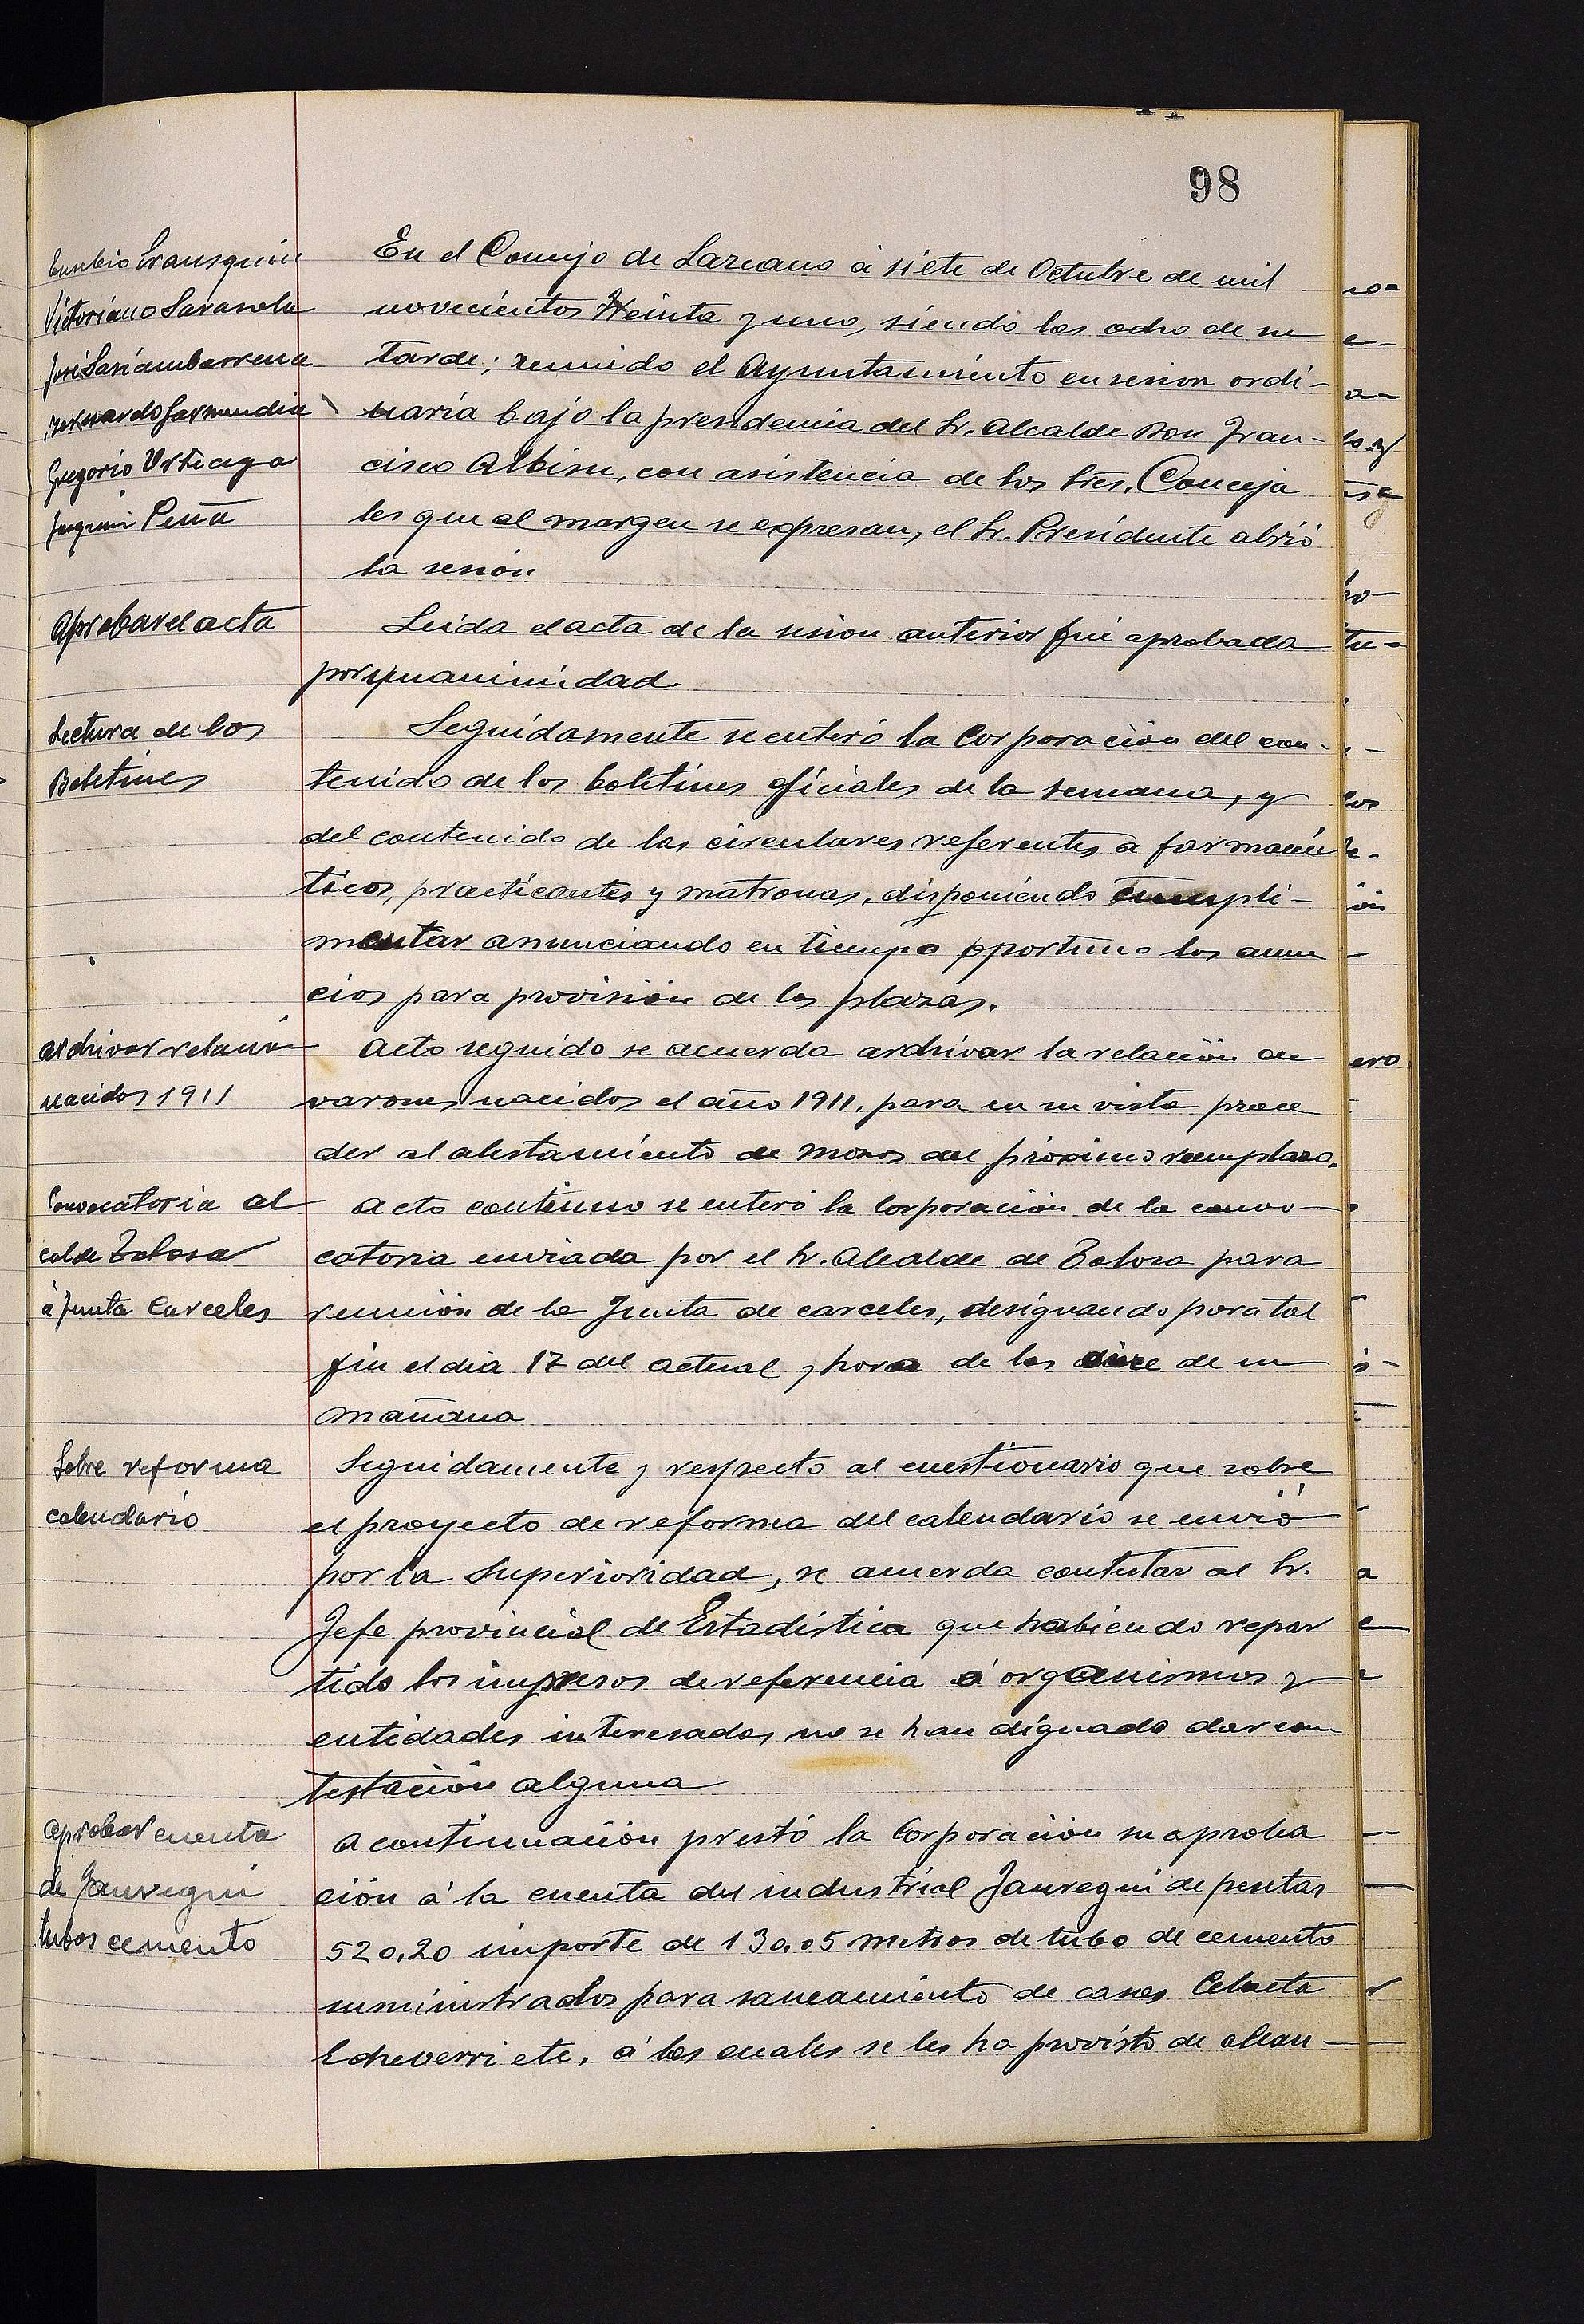 98
Eusebio Irausquin
Victoriano Sarasola
José Sariambarrena
Bernardo Garmendia
Gregorio Urteaga
Joaquin Peña
En el Concejo de Lazcano á siete de Octubre de mil
novecientos treinta y uno, siendo las ocho de su
tarde; reunido el Ayuntamiento en sesion ordi-
naria bajo la presidencia del Sr. Alcalde Don Fran-
cisco Albisu, con asistencia de los Sres. Conceja
les que al margen se expresan, el Sr. Presidente abrió
la sesión
Aprobar el acta
Leida el acta de la sesion anterior fué aprobada
por unanimidad
Lectura de los
Boletines
Seguidamente se enteró la Corporación del con-
tenido de los boletines oficiales de la semana, y
del contenido de las circulares referentes a farmacéu
ticos, practicantes y matronas, disponiendo cumpli-
mentar anunciando en tiempo oportuno los anun
cios para provisión de las plazas.
Archivar relación
nacidos 1911
Acto seguido se acuerda archivar la relación de
varones nacidos el año 1911, para en su vista proce
der al alistamiento de mozos del próximo reemplazo.
Convocatoria al
calde Tolosa
á Junta Carceles
Acto continuo se enteró la Corporación de la convo-
catoria enviada por el Sr. Alcalde de Tolosa para
reunión de la Junta de carceles, designando para tal
fin el dia 17 del actual y hora de las de su
mañana
Sobre reforma
calendario
Seguidamente y respecto al cuestionario que sobre
el proyecto de reforma del calendario se envió
por la Superioridad, se acuerda contestar al Sr.
Jefe provincial de Estadística que habiendo repar
tido los impresos de referencia á organismos y
entidades interesadas no se han dignado dar con
testación alguna
Aprobar cuenta
de Jauregui
tubos cemento
A continuación prestó la Corporación su aproba
ción á la cuenta del industrial Jauregui de pesetas
520,20 importe de 130,05 metros de tubo de cemento
suministrados para saneamiento de casas Celaeta
Echeverri etc, á las cuales se les ha provisto de alcan-